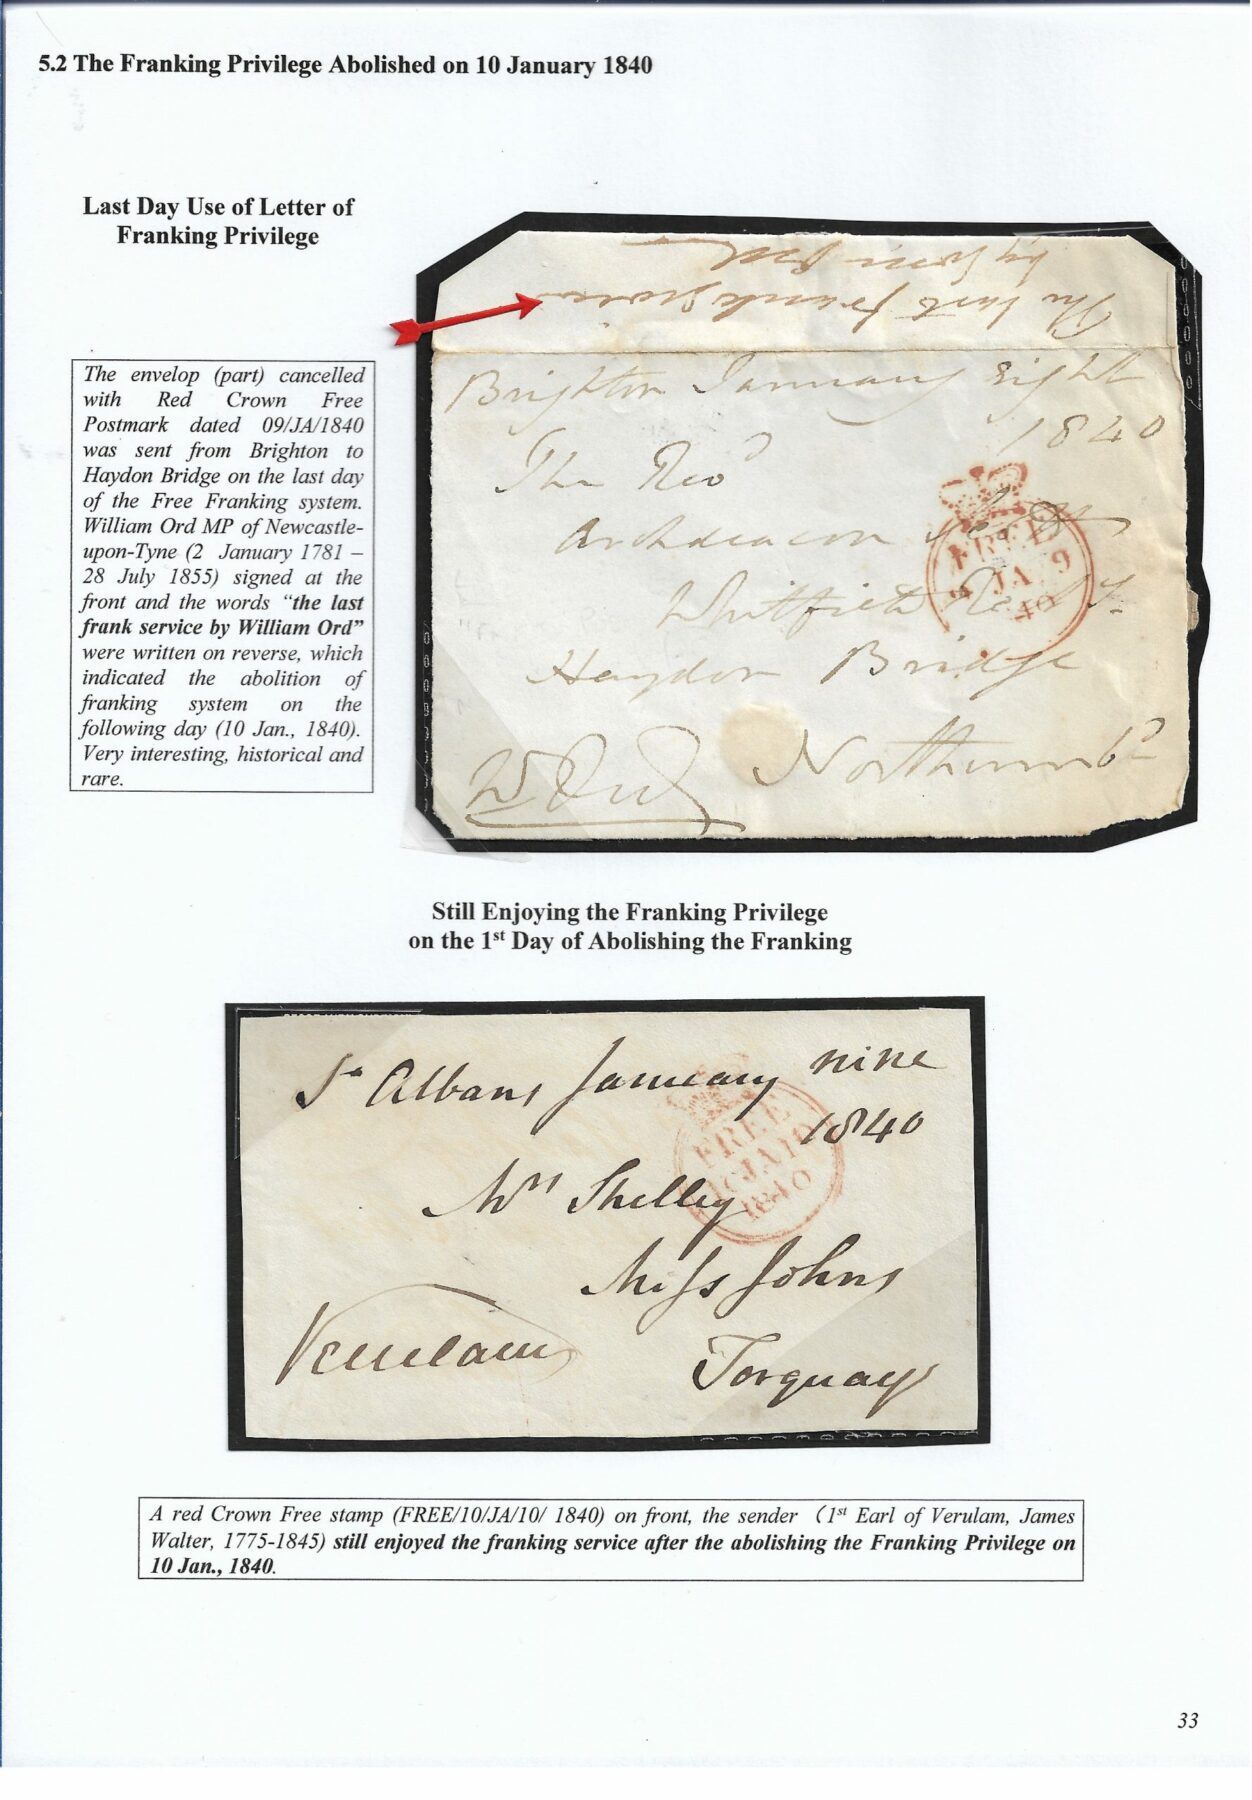 5.2 The Franking Privilege Abolished on 10 January 1840
Last Day Use of Letter of
Franking Privilege
The envelop (part) cancelled
with Red Crown Free
Postmark dated 09/JA/1840
was sent from Brighton to
Haydon Bridge on the last day
of the Free Franking system.
William Ord MP of Newcastle-
upon-Tyne (2 January 1781 –
28 July 1855) signed at the
front and the words "the last
frank service by William Ord"
were written on reverse, which
indicated the abolition of
franking system on the
following day (10 Jan., 1840).
Very interesting, historical and
rare.
The last frank
by
Brighton January Eight
1840
The Revd
Archdeacon
Whitfield
Haydon Bridge
Northumbd
W Ord
FREE
9 JA 9
1840
Still Enjoying the Franking Privilege
on the 1st Day of Abolishing the Franking
St Albans January nine
1840
Mrs Shelley
Miss Johns
Torquay
Verulam
FREE
10 JA 10
1840
A red Crown Free stamp (FREE/10/JA/10/ 1840) on front, the sender (1st Earl of Verulam, James
Walter, 1775-1845) still enjoyed the franking service after the abolishing the Franking Privilege on
10 Jan., 1840.
33